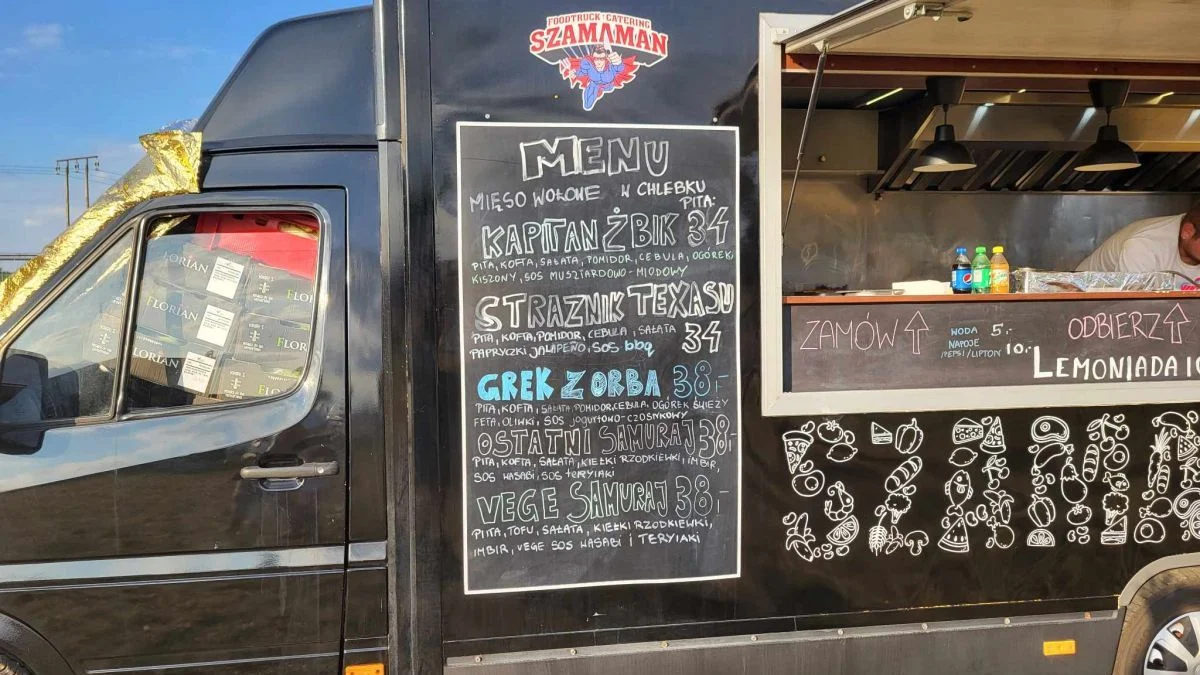 FOODTRUCK & CATERING
SZAMAMAN
MENU
MIĘSO WOŁOWE W CHLEBKU
PITA:
KAPITAN ŻBIK 34
PITA, KOFTA, SAŁATA, POMIDOR, CEBULA, OGÓREK
KISZONY, SOS MUSZTARDOWO-MIODOWY
STRAŻNIK TEXASU
PITA, KOFTA, POMIDOR, CEBULA, SAŁATA 34
PAPRYCZKI JALAPEÑO, SOS bbq
GREK ZORBA 38,-
PITA, KOFTA, SAŁATA, POMIDOR, CEBULA, OGÓREK ŚWIEŻY
FETA, OLIWKI, SOS jOGURTOWO-CZOSNKOWY
OSTATNI SAMURAJ 38,-
PITA, KOFTA, SAŁATA, KIEŁKI RZODKIEWKI, IMBIR,
SOS WASABI, SOS TERYIAKI
VEGE SAMURAJ 38,-
PITA, TOFU, SAŁATA, KIEŁKI RZODKIEWKI,
IMBIR, VEGE SOS WASABI i TERYIAKI
ZAMÓW ↑
WODA 5.-
NAPOJE
/PEPSI/LIPTON 10.-
ODBIERZ ↑
LEMONIADA 10
LORIAN
FLORIAN
LORIAN
FLOR
FLOR
FLO